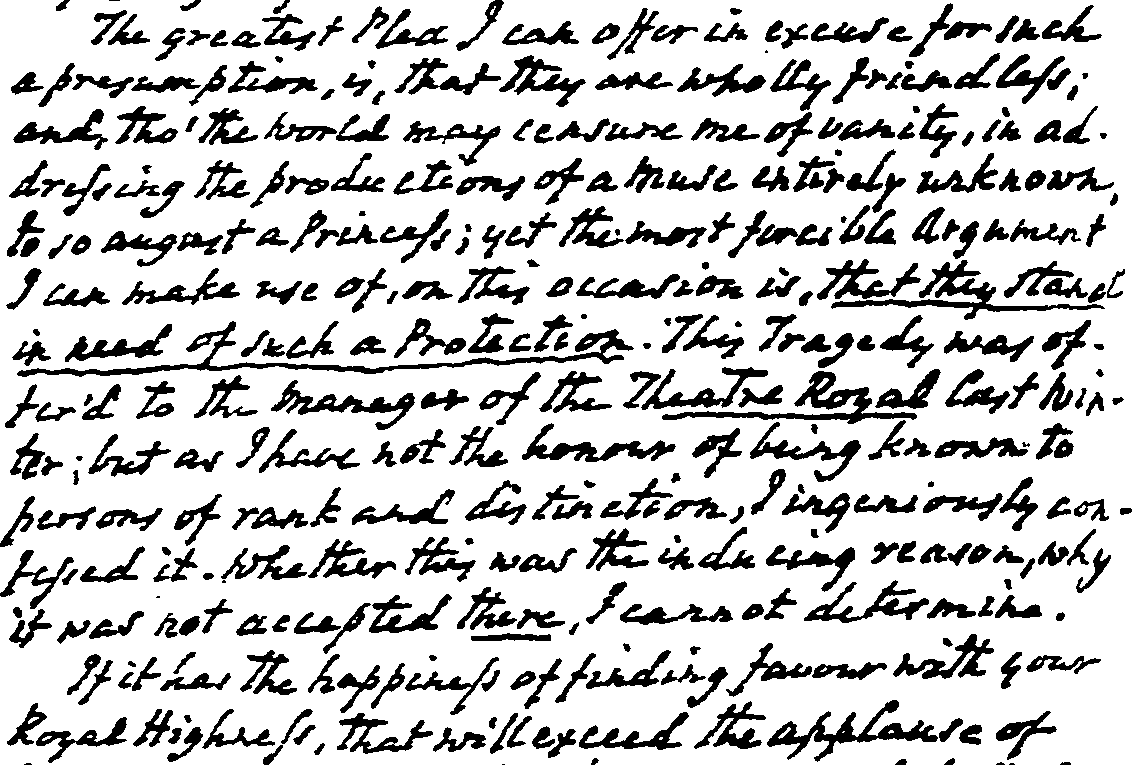 The greatest Plea I can offer in excuse for such
a presumption, is, that they are wholly friendleſs;
and, tho' the world may censure me of vanity, in ad-
dreſsing the productions of a Muse entirely unknown,
to so august a Princeſs; yet the most forcible Argument
I can make use of, on this occasion is, that they stand
in need of such a Protection. This Tragedy was of-
fer'd to the manager of the Theatre Royal last Win-
ter; but as I have not the honour of being known to
persons of rank and distinction, I ingeniously con-
feſsed it. Whether this was the inducing reason, why
it was not accepted there, I cannot determine.
If it has the happineſs of finding favour with your
Royal Highneſs, that will exceed the applause of